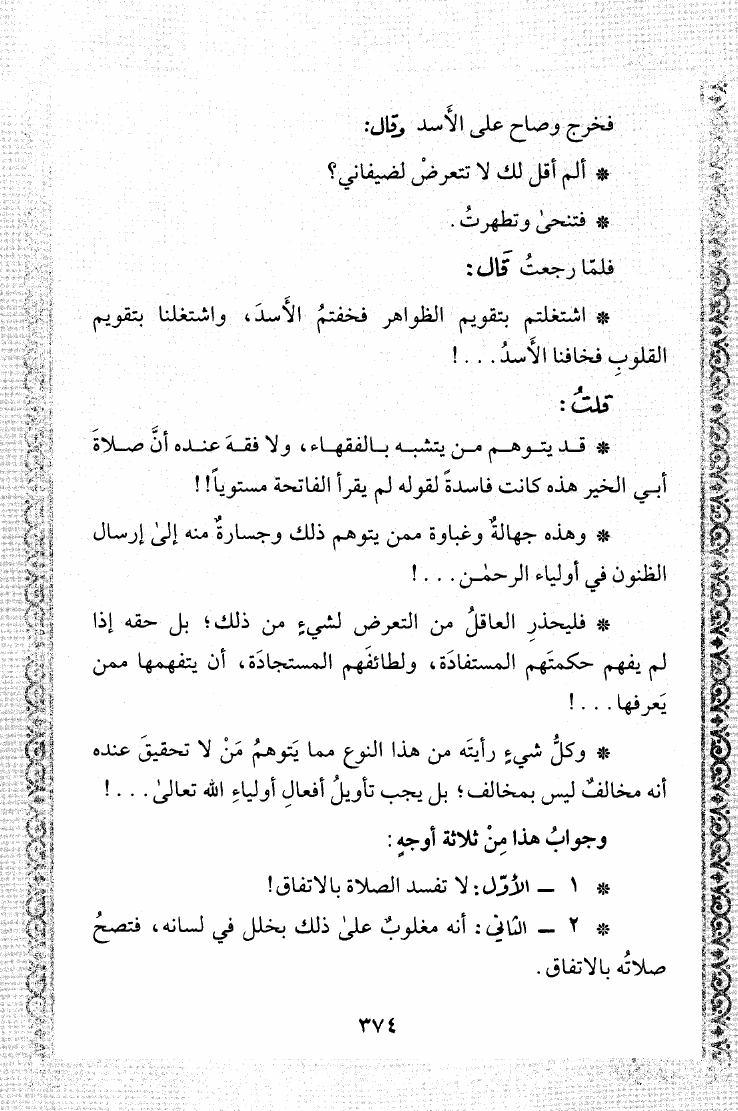 فخرج وصاح على الأَسد وقال:
* ألم أقل لك لا تتعرضْ لضيفاني؟
* فتنحىٰ وتطهرتُ.
فلمّا رجعتُ قَال:
* اشتغلتم بتقويم الظواهر فخفتمُ الأَسدَ، واشتغلنا بتقويم
القلوبِ فخافنا الأَسدُ...!
قلتُ:
* قد يتوهم من يتشبه بالفقهاء، ولا فقهَ عنده أنَّ صلاةَ
أبي الخير هذه كانت فاسدةً لقوله لم يقرأ الفاتحة مستوياً!!
* وهذه جهالةٌ وغباوة ممن يتوهم ذلك وجسارةٌ منه إلىٰ إرسال
الظنون في أولياء الرحمٰن...!
* فليحذرِ العاقلُ من التعرض لشيءٍ من ذلك؛ بل حقه إذا
لم يفهم حكمتَهم المستفادَة، ولطائفَهم المستجادَة، أن يتفهمها ممن
يَعرفها...!
* وكلُّ شيءٍ رأيتَه من هذا النوع مما يَتوهمُ مَنْ لا تحقيقَ عنده
أنه مخالفٌ ليس بمخالف؛ بل يجب تأويلُ أفعالِ أولياءِ الله تعالىٰ...!
وجوابُ هذا مِنْ ثلاثة أوجهٍ:
* ١ ــ الأوّل: لا تفسد الصلاة بالاتفاق!
* ٢ ــ الثاني: أنه مغلوبٌ علىٰ ذلك بخلل في لسانه، فتصحُ
صلاتُه بالاتفاق.
٣٧٤